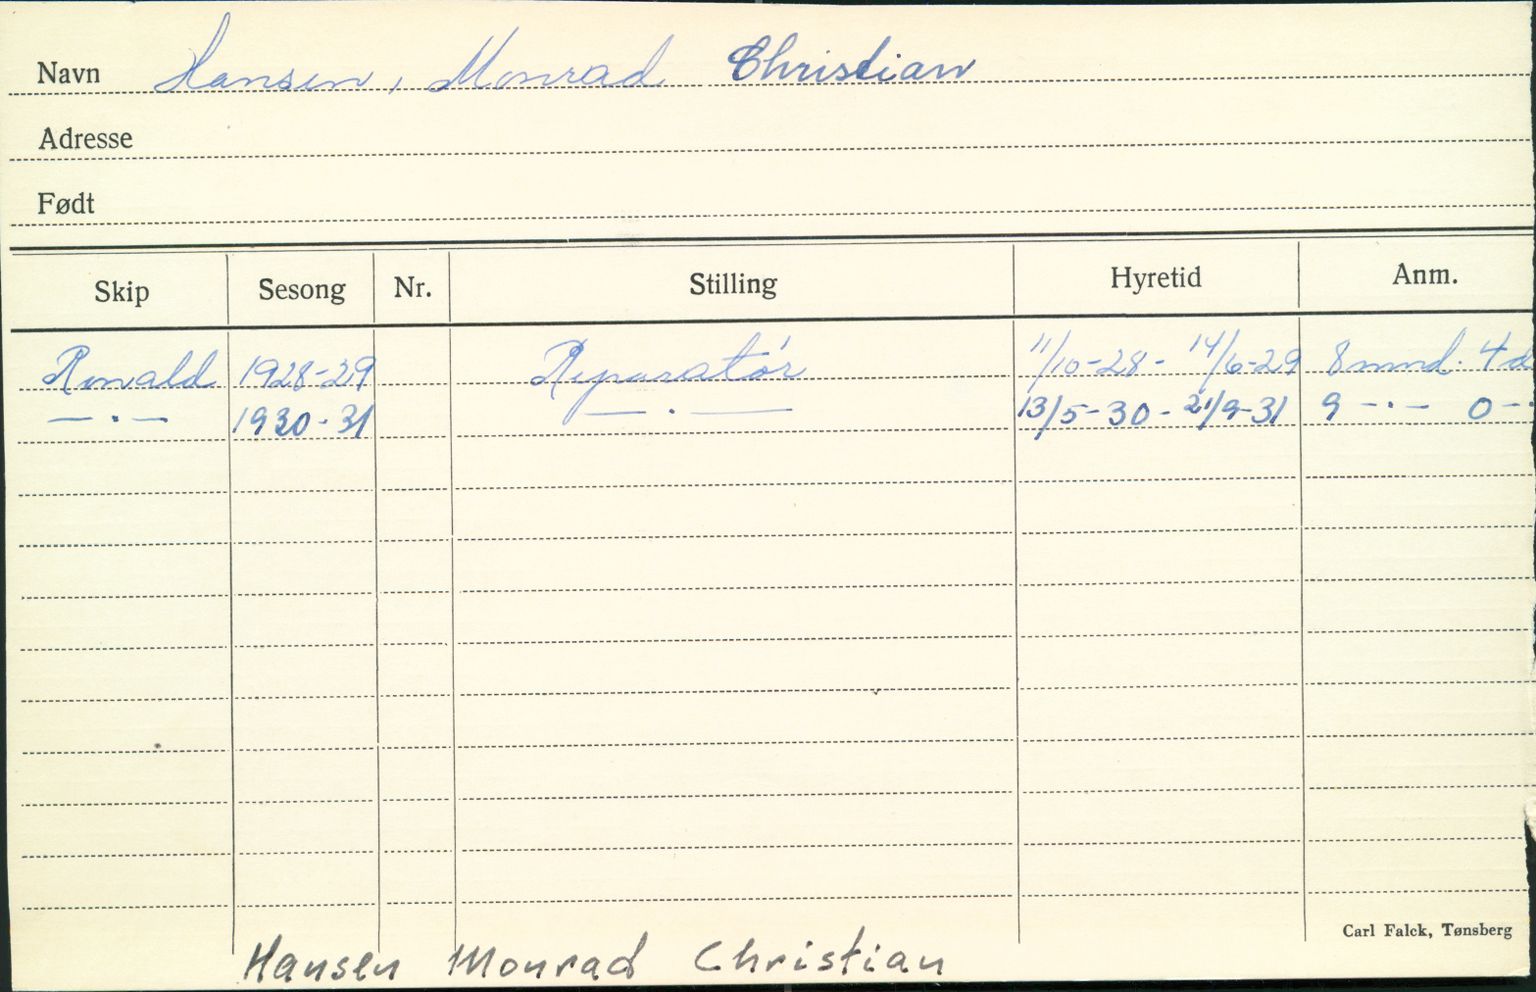 Navn Hansen, Monrad Christian
Adresse
Født
Skip Sesong Nr. Stilling Hyretid Anm.
Ronald 1928-29 Reparatør 11/10-28 - 14/6-29 8 mnd. 4 d
— . — 1930-31 — . — 13/5-30 - 21/9-31 9 — . — 0 — .
Carl Falck, Tønsberg
Hansen Monrad Christian